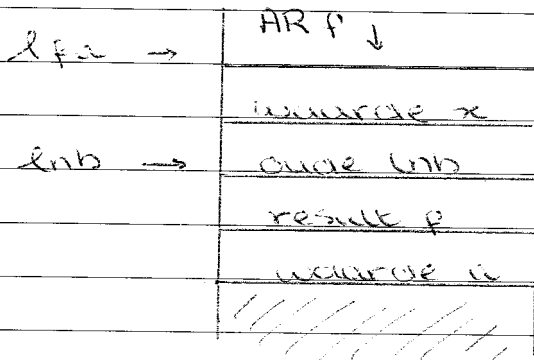 AR f ↓
lfa →
waarde x
lnb → oude lnb
result f
waarde a